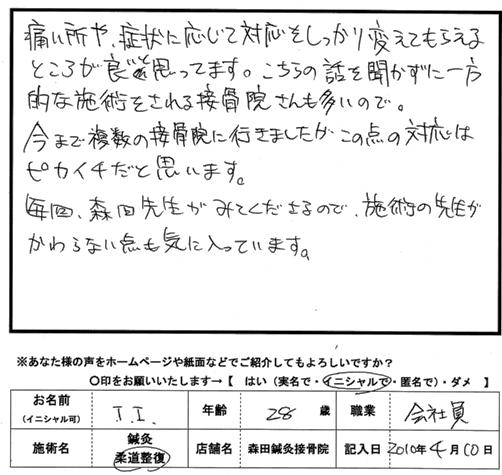 痛い所や、症状に応じて対応をしっかり変えてもらえる
ところが良いと思ってます。こちらの話を聞かずに一方
的な施術をされる接骨院さんも多いので。
今まで複数の接骨院に行きましたがこの点の対応は
ピカイチだと思います。
毎回、森田先生がみてくださるので、施術の先生が
かわらない点も気に入っています。
※あなた様の声をホームページや紙面などでご紹介してもよろしいですか?
○印をお願いいたします→【 はい(実名で・イニシャルで・匿名で)・ダメ 】
お名前(イニシャル可) I.I. 年齢 28歳 職業 会社員
施術名 鍼灸 柔道整復 店舗名 森田鍼灸接骨院 記入日 2010年4月10日